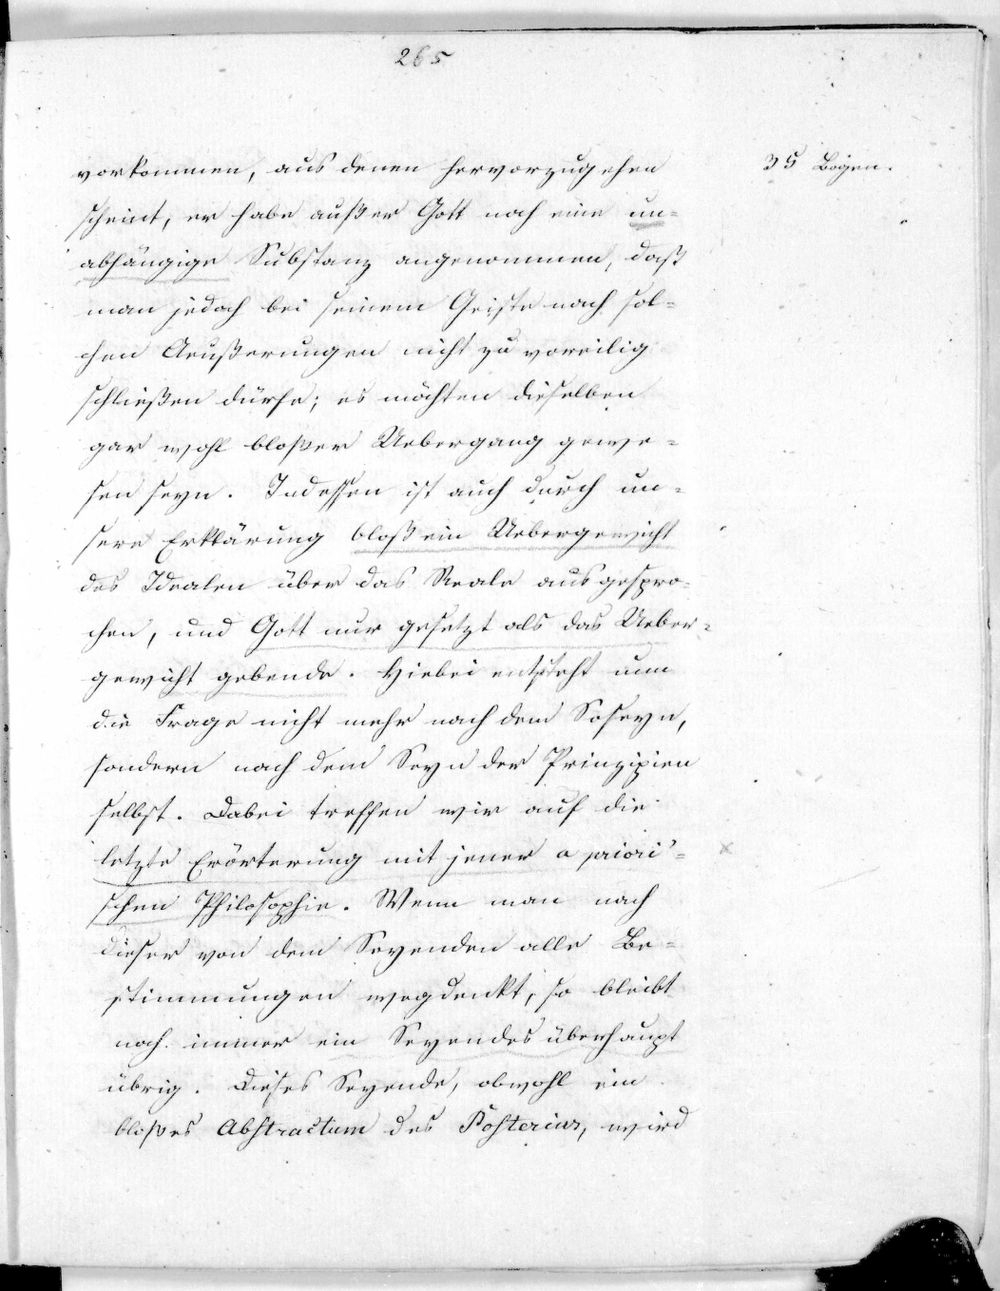 265
35 Bogen.
vorkommen, aus denen hervorzugehen
scheint, er habe außer Gott noch eine un=
abhängige Substanz angenommen, daß
man jedoch bei seinem Geiste nach sol=
chen Aeußerungen nicht zu voreilig
schließen dürfe; es möchten dieselben
gar wohl bloßer Uebergang gewe=
sen seyn. Indessen ist auch durch un=
sere Erklärung bloß ein Uebergewicht
des Idealen über das Reale ausgespro=
chen, und Gott nur gesetzt als das Ueber=
gewicht gebende. Hiebei entsteht nun
die Frage nicht mehr nach dem Soseyn,
sondern nach dem Seyn der Prinzipien
selbst. Dabei treffen wir auf die
letzte Erörterung mit jener a priori=
schen Philosophie. Wenn man nach
dieser von dem Seyenden alle Be=
stimmungen wegdenkt, so bleibt
noch immer ein Seyendes überhaupt
übrig. Dieses Seyende, obwohl ein
bloßes Abstractum des Posterius, wird